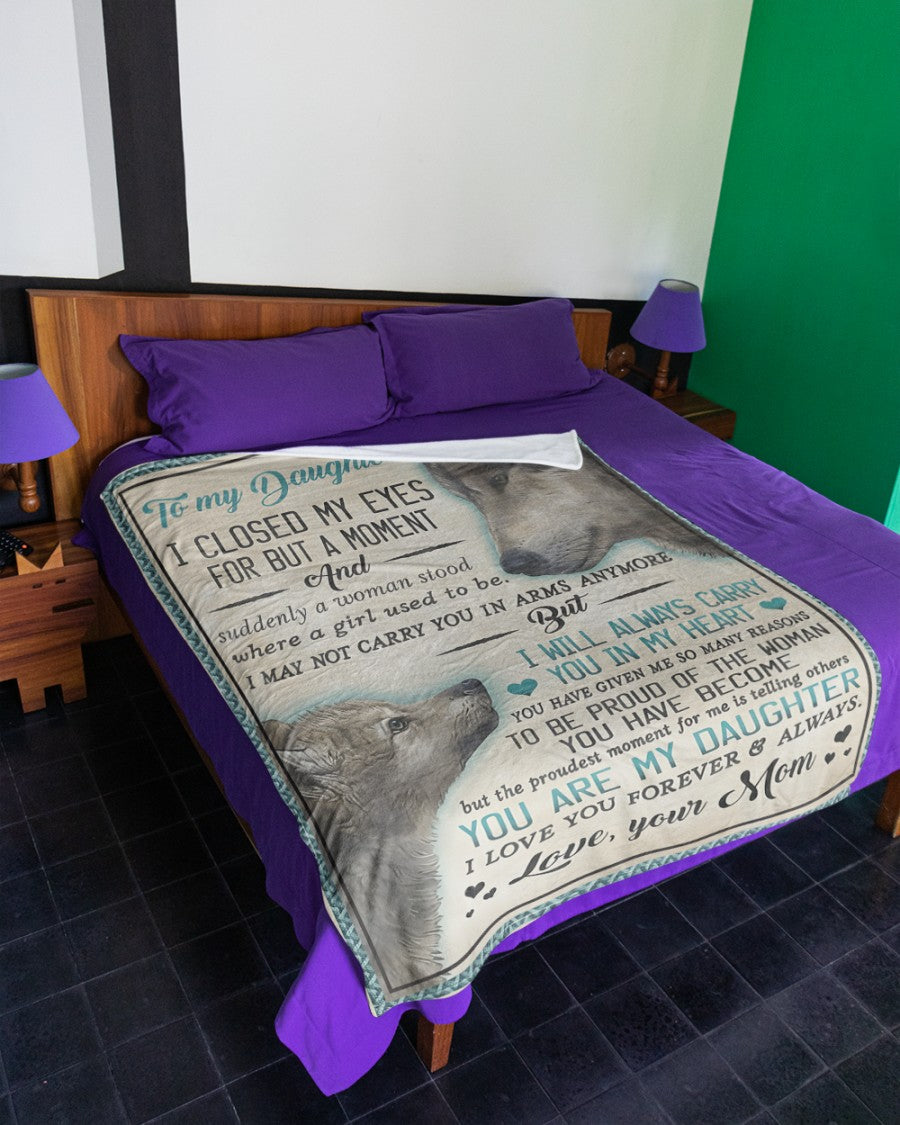 To my Daughte
I CLOSED MY EYES
FOR BUT A MOMENT
And
suddenly a woman stood
where a girl used to be.
I MAY NOT CARRY YOU IN ARMS ANYMORE
But
I WILL ALWAYS CARRY
YOU IN MY HEART
YOU HAVE GIVEN ME SO MANY REASONS
TO BE PROUD OF THE WOMAN
YOU HAVE BECOME
but the proudest moment for me is telling others
YOU ARE MY DAUGHTER
I LOVE YOU FOREVER & ALWAYS.
Love, your Mom